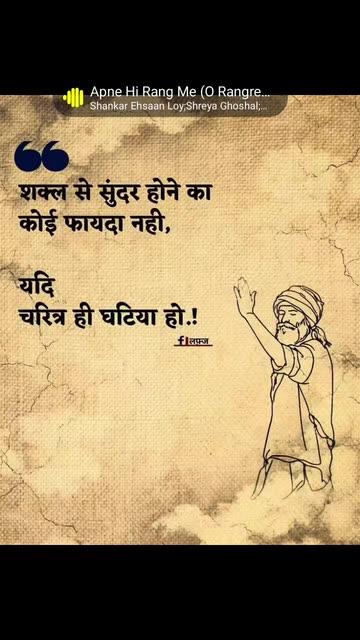 Apne Hi Rang Me (O Rangre...
Shankar Ehsaan Loy;Shreya Ghoshal;...
शक्ल से सुंदर होने का
कोई फायदा नही,
यदि
चरित्र ही घटिया हो.!
f लफ़्ज